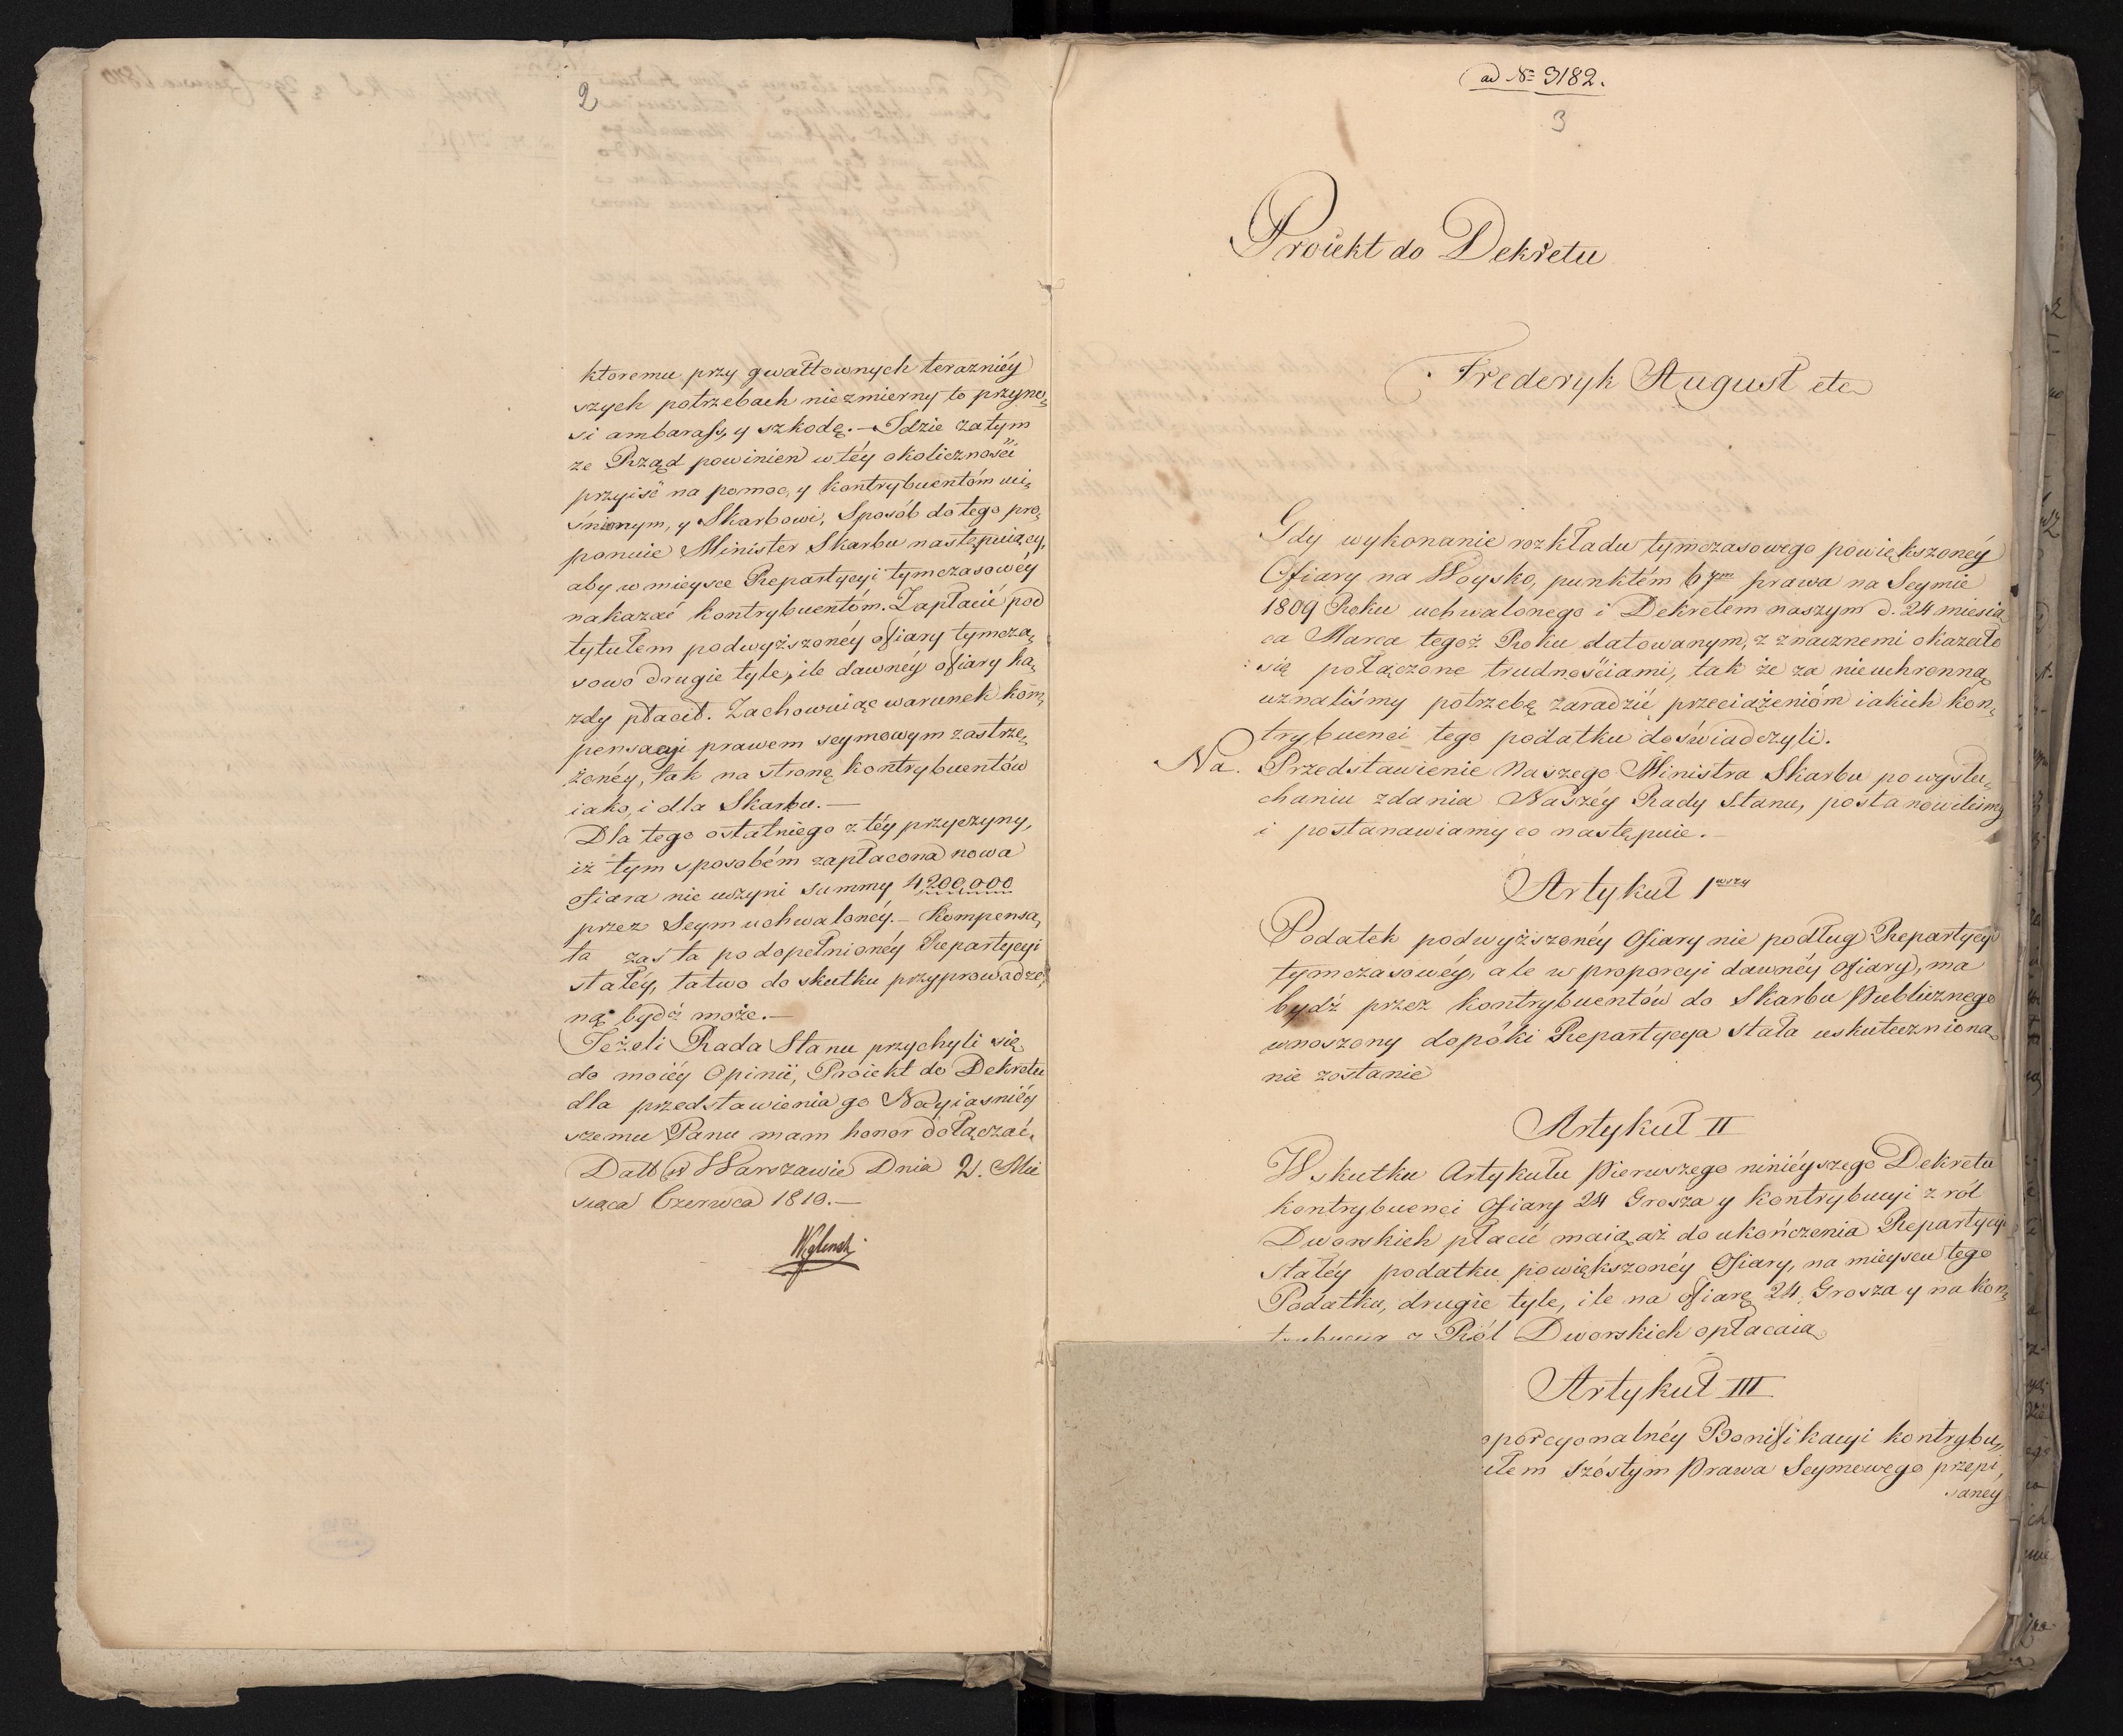 2
ktoremu przy gwałtownych terazniéy
szych potrzebach niezmierny to przyno„
si ambarass, y szkodę. — Idzie zatym
ze Rząd powinien w téy okoliczności
przyiść na pomoc, y kontrybuentóm uci„
śnionym, y Skarbowi, Sposób do tego pro„
ponuie Minister Skarbu następuiący,
aby w mieysce Repartycyi tymczasowéy
nakazać kontrybuentóm. Zapłacić pod
tytułem podwyższonéy ofiary tymcza„
sowo drugie tyle, ile dawnéy ofiary ka„
zdy płacił. Zachowuiąc warunek kom„
pensacyi prawem seymowym zastrze„
żonéy, tak na stronę kontrybuentów
iako, i dla Skarbu. —
Dla tego ostatniego z téy przyczyny,
iż tym sposobém zapłacona nowa
ofiara nie uczyni summy 4200,000
przez Seym uchwalonéy. — Kompensa„
ta zaś ta po dopełnionéy Repartycyi
stałéy, łatwo do skutku przyprowadzo„
ną bydź może. —
Jeżeli Rada Stanu przychyli się
do moiéy Opinii, Proiekt do Dekretu
dla przedstawienia go Nayiaśniéy
szemu Panu mam honor dołączać.
Datt w Warszawie Dnia 2. Mie
siąca Czerwca 1810. —
Węglenski
ad № 3182.
3
Proiekt do Dekretu
Frederyk August etc
Gdy wykonanie rozkładu tymczasowego powiększonéy
Ofiary na Woysko, punktém 6tym prawa na Seymie
1809 Roku uchwalonego i Dekretem naszym d. 24 miesią
ca Marca tegoż Roku datowanym, z znacznemi okazało
się połączone trudnościami, tak że za nieuchronną
uznaliśmy potrzebę zaradzić przeciążenióm iakich kon„
trybuenci tego podatku doświadczyli.
Na. Przedstawienie Naszego Ministra Skarbu po wysłu„
chaniu zdania Naszéy Rady Stanu, postanowiliśmy
i postanawiamy co następuie. —
Artykuł 1wszy
Podatek podwyższonéy Ofiary nie podług Repartycyi
tymczasowéy, ale w proporcyi dawnéy ofiary, ma
bydź przez kontrybuentów do Skarbu Publicznego
wnoszony dopóki Repartycya stała uskuteczniona
nie zostanie
Artykuł II
W skutku Artykułu Pierwszego niniéyszego Dekretu
kontrybuenci Ofiary 24 Grosza y kontrybucyi z ról
Dworskich płacić maią aż do ukończenia Repartycyi
Stałéy podatku powiększonéy Ofiary, na mieyscu tego
Podatku, drugie tyle, ile na ofiarę 24 Grosza y na kon„
trybucyą z Ról Dworskich opłacaią
Artykuł III
oporcyonalnéy Bonifikacyi kontrybu„
ułem szóstym Prawa Seymowego przepi„
sanéy